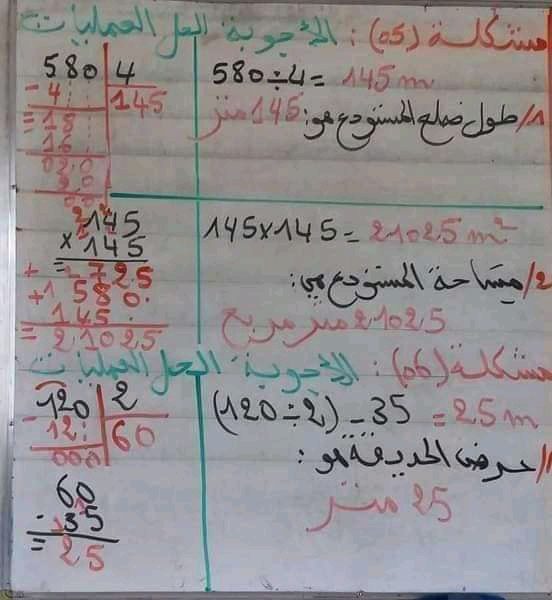 مشكلة (05): الأجوبة الحل العمليات
580÷4= 145 m
1/ طول ضلع المستودع هو: 145 متر
580 4
- 4 145
= 18
16
020
20
00
145×145= 21025 m²
2/ مساحة المستودع هي:
21025 متر مربع
145
× 145
= 725
+ 580.
+ 145
= 21025
مشكلة (06): الأجوبة الحل العمليات
(120÷2) - 35 = 25 m
1/ عرض الحديقة هو:
25 متر
120 2
- 12 60
000
60
- 35
= 25